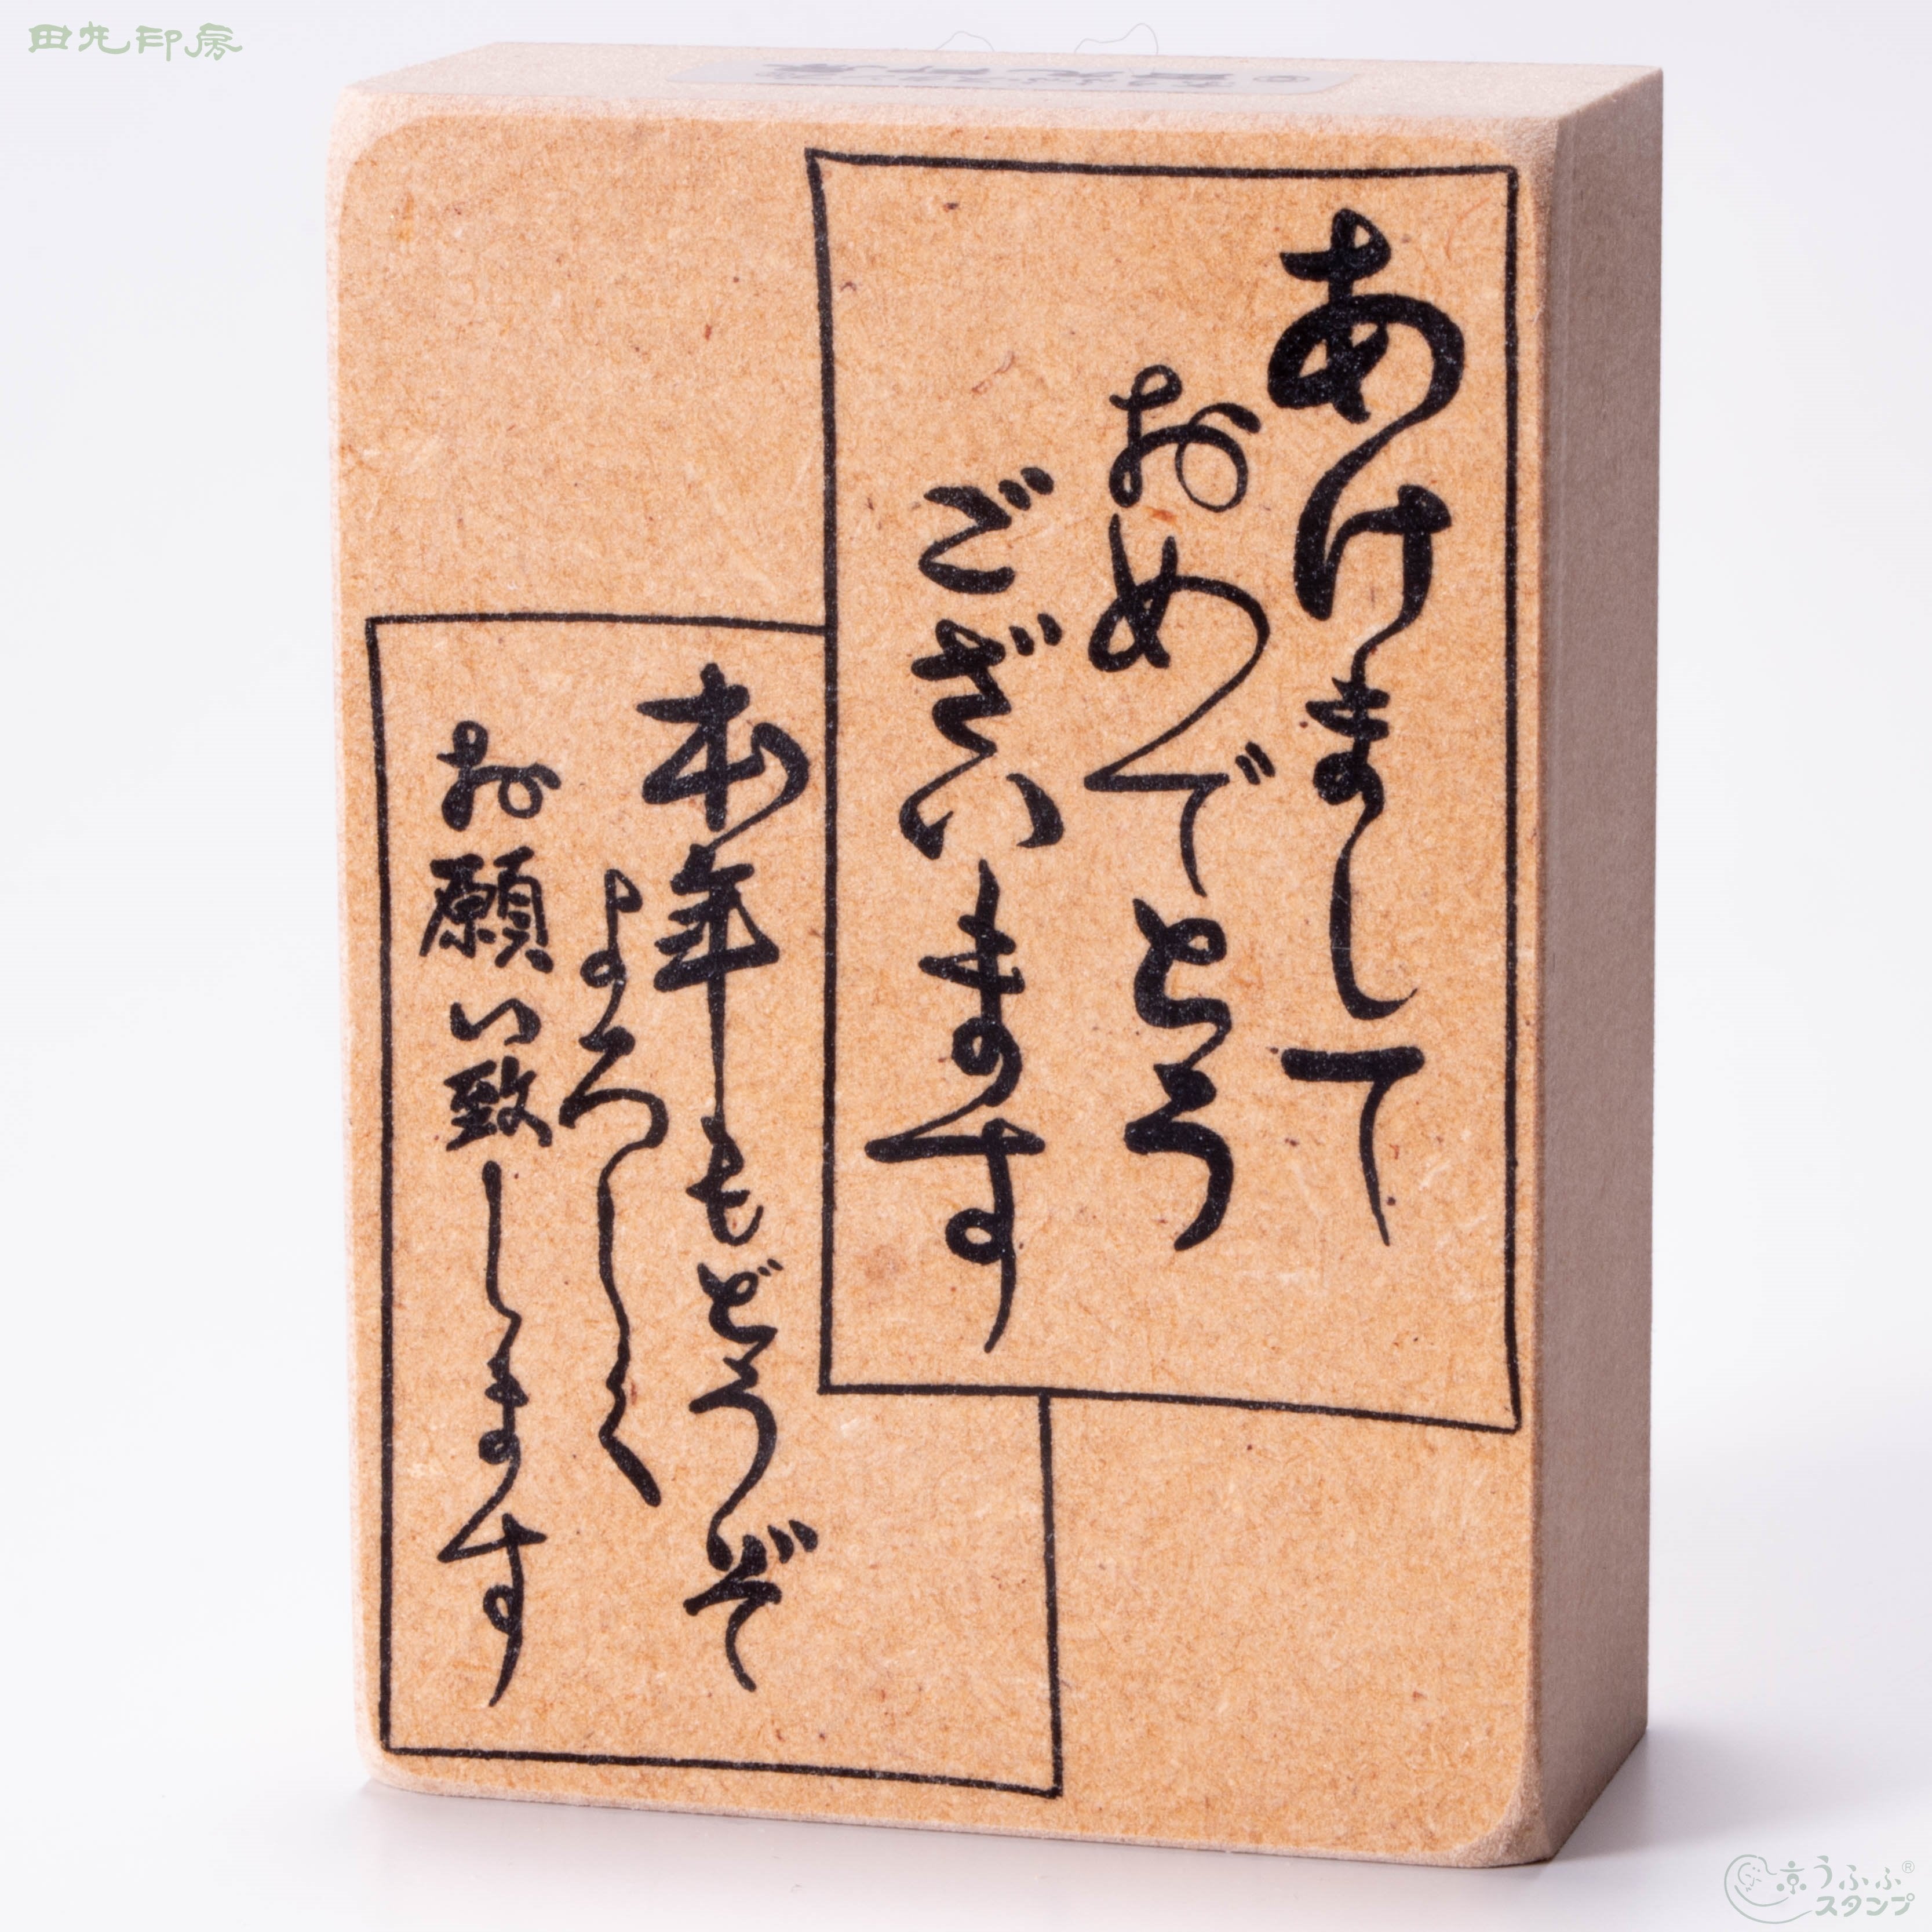 田丸印房
あけまして
おめでとう
ございます
本年もどうぞ
よろしく
お願い致します
京うふふ®
スタンプ